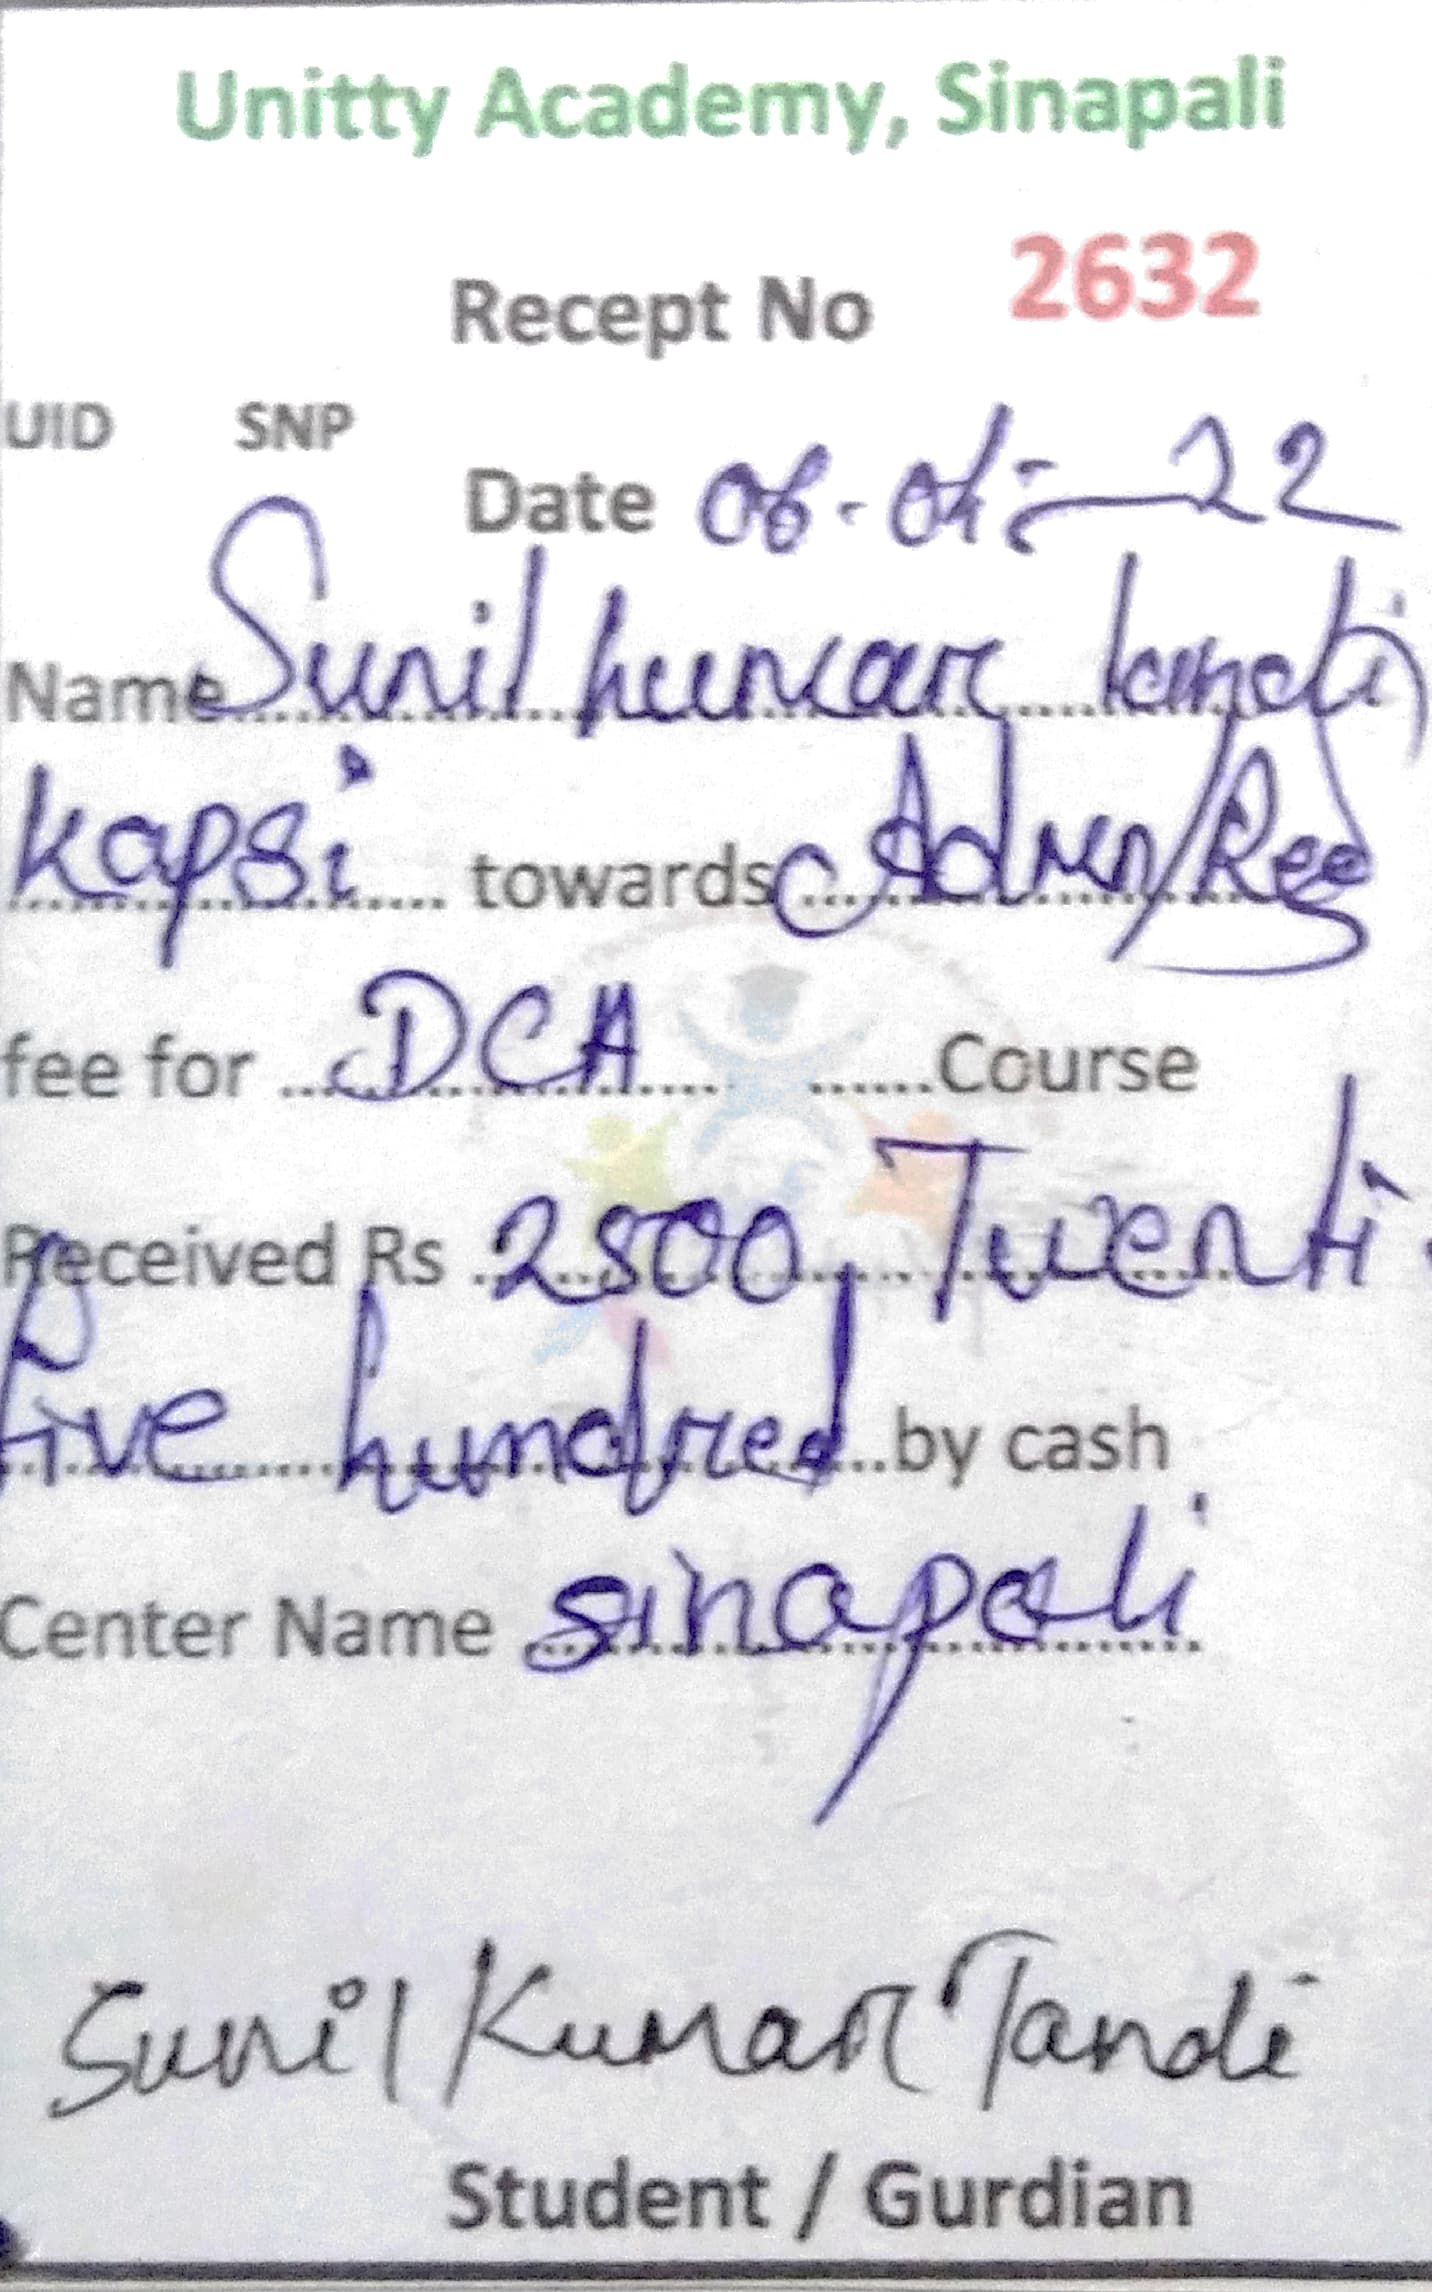 Unitty Academy, Sinapali
Recept No 2632
UID SNP
Date 06-01-22
Name Sunil kumar tandi
Kapsi towards Admn/Reg
fee for DCA Course
Received Rs 2500, Twenti
five hundred by cash
Center Name sinapali
Sunil Kumar Tandi
Student / Gurdian